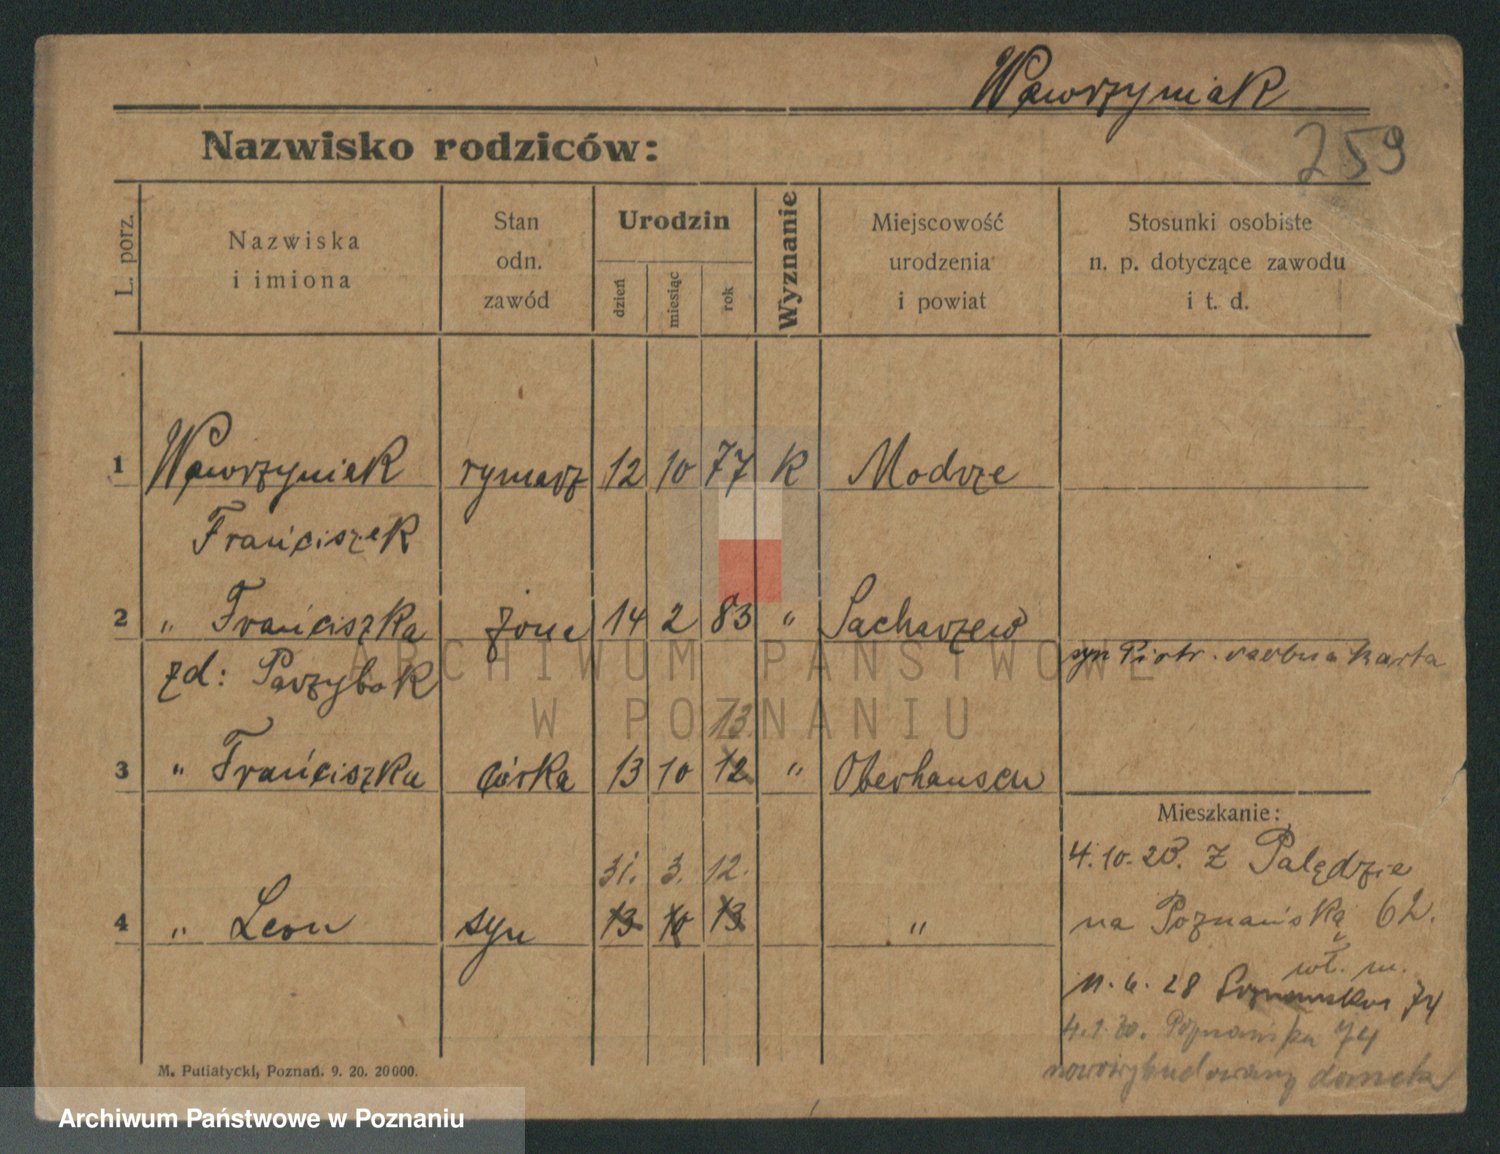 Wawrzyniak
Nazwisko rodziców:
259
L. porz.
Nazwiska
i imiona
Stan
odn.
zawód
Urodzin
dzień
miesiąc
rok
Wyznanie
Miejscowość
urodzenia
i powiat
Stosunki osobiste
n. p. dotyczące zawodu
i t. d.
1 Wawrzyniak rymarz 12 10 77 K Modrze
Franciszek
2 " Franciszka żona 14 2 83 " Sacharzew
syn Piotr. osobna karta
zd: Parzybok
13.
3 " Franciszka córka 13 10 12 " Oberhausen
Mieszkanie:
4.10.23. Z Palędzie
31. 3. 12.
4 " Leon syn 13 10 13 "
na Poznańską 62.
wł. m.
11. 6. 28 Poznańska 74
4.2.30. Poznańska 74
nowowybudowany domek
M. Putiatycki, Poznań. 9. 20. 20000.
ARCHIWUM PAŃSTWOWE
W POZNANIU
Archiwum Państwowe w Poznaniu